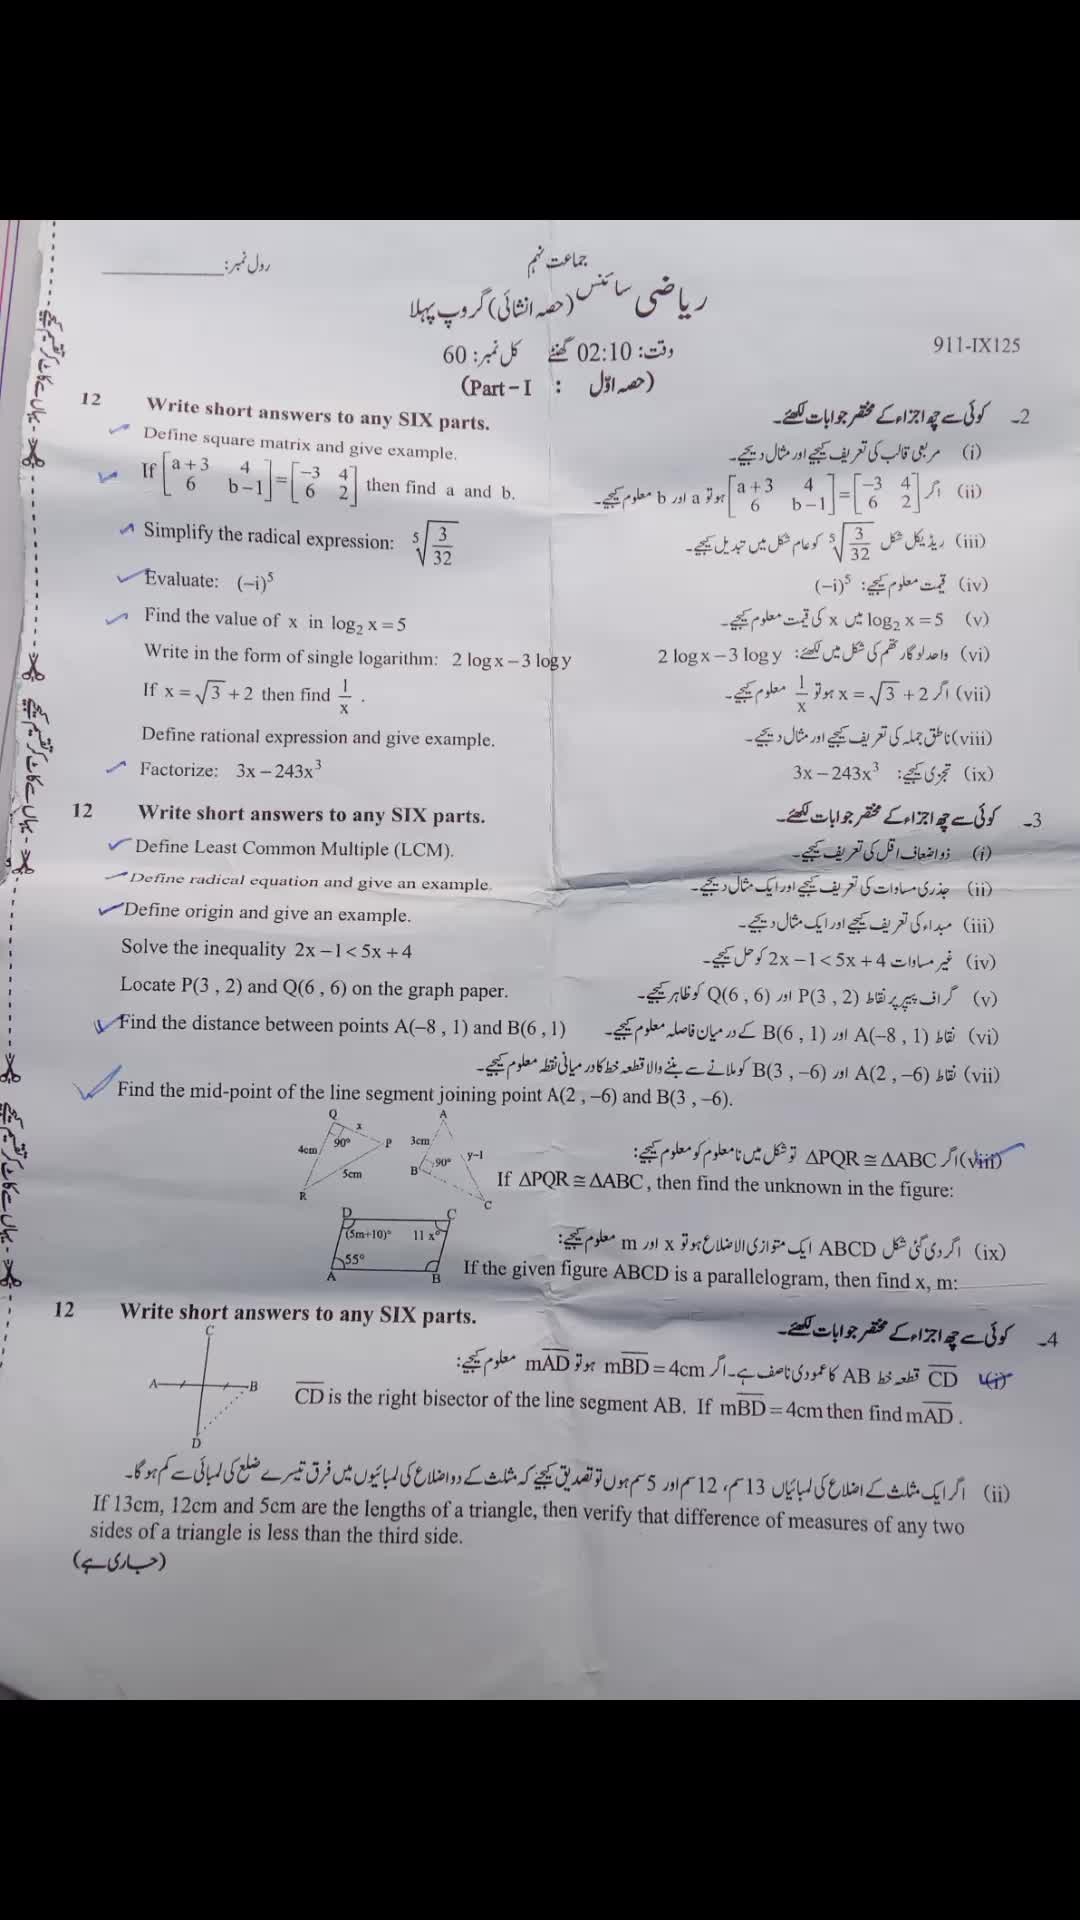 رول نمبر: ____________
جماعت نہم
ریاضی سائنس (حصہ انشائی) گروپ پہلا
911-IX125
وقت: 02:10 گھنٹے کل نمبر: 60
(Part-I : حصہ اوّل)
12 Write short answers to any SIX parts.
2- کوئی سے چھ اجزاء کے مختصر جوابات لکھئے۔
Define square matrix and give example.
(i) مربعی قالب کی تعریف کیجیے اور مثال دیجیے۔
If [a+3 4 6 b-1] = [-3 4 6 2] then find a and b.
(ii) اگر [a+3 4 6 b-1] = [-3 4 6 2] ہو تو a اور b معلوم کیجیے۔
Simplify the radical expression: ⁵√(3/32)
(iii) ریڈیکل شکل ⁵√(3/32) کو عام شکل میں تبدیل کیجیے۔
Evaluate: (-i)⁵
(iv) قیمت معلوم کیجیے: (-i)⁵
Find the value of x in log₂ x = 5
(v) log₂ x = 5 میں x کی قیمت معلوم کیجیے۔
Write in the form of single logarithm: 2 log x - 3 log y
(vi) واحد لوگارتھم کی شکل میں لکھئے: 2 log x - 3 log y
If x = √3 + 2 then find 1/x .
(vii) اگر x = √3 + 2 ہو تو 1/x معلوم کیجیے۔
Define rational expression and give example.
(viii) ناطق جملہ کی تعریف کیجیے اور مثال دیجیے۔
Factorize: 3x - 243x³
(ix) تجزی کیجیے: 3x - 243x³
12 Write short answers to any SIX parts.
3- کوئی سے چھ اجزاء کے مختصر جوابات لکھئے۔
Define Least Common Multiple (LCM).
(i) ذواضعاف اقل کی تعریف کیجیے۔
Define radical equation and give an example.
(ii) جذری مساوات کی تعریف کیجیے اور ایک مثال دیجیے۔
Define origin and give an example.
(iii) مبداء کی تعریف کیجیے اور ایک مثال دیجیے۔
Solve the inequality 2x - 1 < 5x + 4
(iv) غیر مساوات 2x - 1 < 5x + 4 کو حل کیجیے۔
Locate P(3 , 2) and Q(6 , 6) on the graph paper.
(v) گراف پیپر پر نقاط P(3 , 2) اور Q(6 , 6) کو ظاہر کیجیے۔
Find the distance between points A(-8 , 1) and B(6 , 1)
(vi) نقاط A(-8 , 1) اور B(6 , 1) کے درمیان فاصلہ معلوم کیجیے۔
(vii) نقاط A(2 , -6) اور B(3 , -6) کو ملانے سے بننے والا قطعہ خط کا درمیانی نقطہ معلوم کیجیے۔
Find the mid-point of the line segment joining point A(2 , -6) and B(3 , -6).
Q x P 4cm 90° 5cm R
A 3cm B 90° y-1 C
(viii) اگر ΔPQR ≅ ΔABC تو شکل میں نامعلوم کو معلوم کیجیے:
If ΔPQR ≅ ΔABC, then find the unknown in the figure:
D C (5m+10)° 11 x° 55° A B
(ix) اگر دی گئی شکل ABCD ایک متوازی الاضلاع ہو تو x اور m معلوم کیجیے:
If the given figure ABCD is a parallelogram, then find x, m:
12 Write short answers to any SIX parts.
4- کوئی سے چھ اجزاء کے مختصر جوابات لکھئے۔
C A B D
(i) CD قطعہ خط AB کا عمودی ناصف ہے۔ اگر mBD = 4cm ہو تو mAD معلوم کیجیے:
CD is the right bisector of the line segment AB. If mBD = 4cm then find mAD .
(ii) اگر ایک مثلث کے اضلاع کی لمبائیاں 13 سم، 12 سم اور 5 سم ہوں تو تصدیق کیجیے کہ مثلث کے دو اضلاع کی لمبائیوں میں فرق تیسرے ضلع کی لمبائی سے کم ہوگا۔
If 13cm, 12cm and 5cm are the lengths of a triangle, then verify that difference of measures of any two
sides of a triangle is less than the third side.
(جاری ہے)